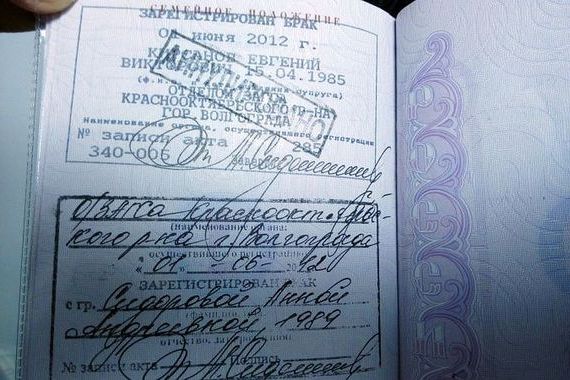 СЕМЕЙНОЕ ПОЛОЖЕНИЕ
ЗАРЕГИСТРИРОВАН БРАК
01 ИЮНЯ 2012 Г.
ЕВГЕНИЙ
15.04.1985
ОТДЕЛОМ
КРАСНООКТЯБРЬСКОГО Р-НА
ГОР. ВОЛГОГРАДА
Наименование органа, осуществившего регистрацию
№ записи акта 285
340-006 Заверено
О/ЗАГСа Краснооктябрьс-
кого р-на г. Волгограда
(наименование органа,
осуществившего регистрацию)
"01" - 06 - 2012
ЗАРЕГИСТРИРОВАН БРАК
с гр. Сидоровой Анной
Андреевной, 1989
отчество, дата рождения
№ записи акта Подпись